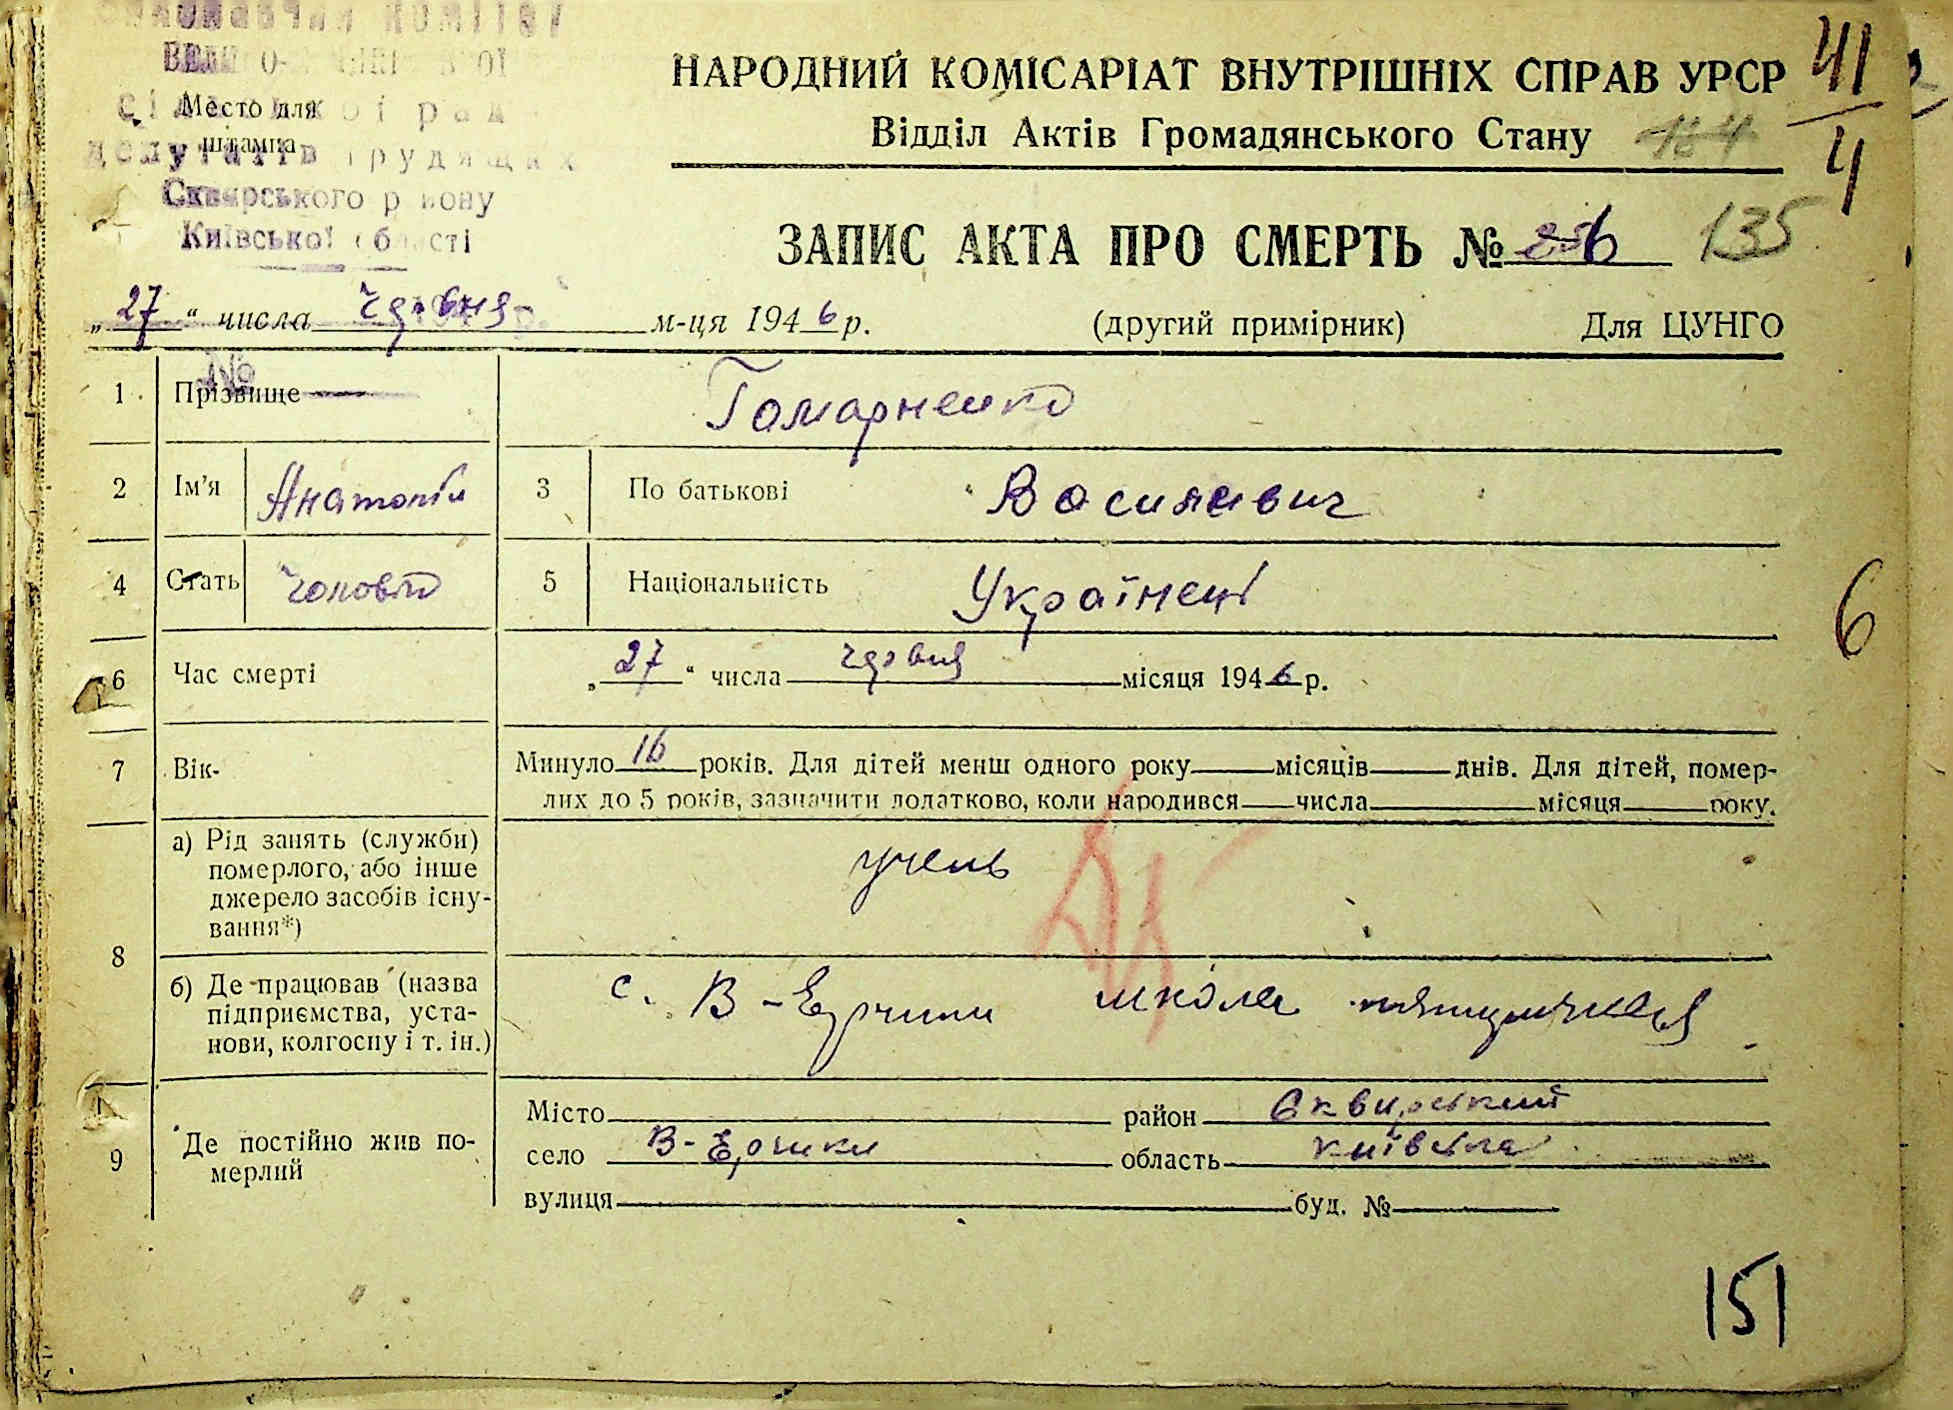 Место для
штампа
сільської рад
депутатів трудящих
Сквирського району
Київської області
НАРОДНИЙ КОМІСАРІАТ ВНУТРІШНІХ СПРАВ УРСР
Відділ Актів Громадянського Стану
41
4
ЗАПИС АКТА ПРО СМЕРТЬ № 135
„27“ числа червня м-ця 1946 р. (другий примірник) Для ЦУНГО
№
1 Прізвище Гомарненко
2 Ім’я Анатолій 3 По батькові Василевич
4 Стать чоловіч 5 Національність Українець
6 Час смерті „27“ числа червня місяця 1946 р.
7 Вік- Минуло 16 років. Для дітей менш одного року місяців днів. Для дітей, помер-
лих до 5 років, зазначити додатково, коли народився числа місяця року.
8 а) Рід занять (служби)
померлого, або інше
джерело засобів існу-
вання*)
учень
б) Де працював (назва
підприємства, уста-
нови, колгоспу і т. ін.)
с. В-Ерчики школа
9 Де постійно жив по-
мерлий
Місто район Сквирський
село В-Ерчики область Київська
вулиця буд. №
6
151